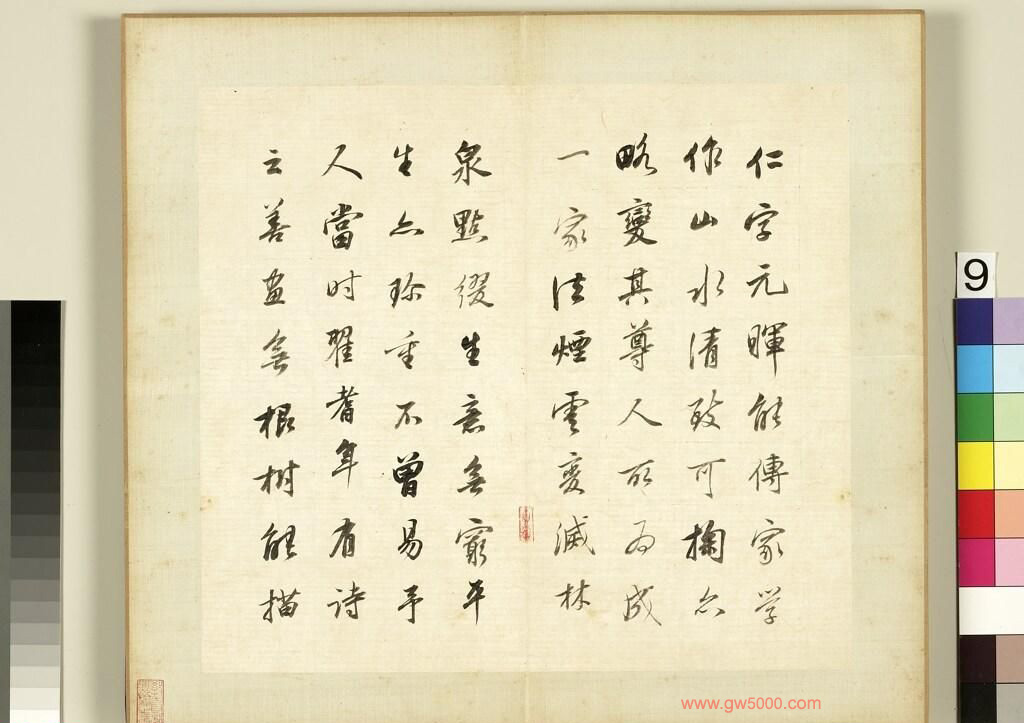 仁字元暉能傳家学
作山水清致可掬亦
略變其尊人所为成
一家法煙雲变滅林
泉點缀生意無窮平
生亦珍重不曾易予
人當时翟耆年有诗
云善画無根树能描
9
www.gw5000.com